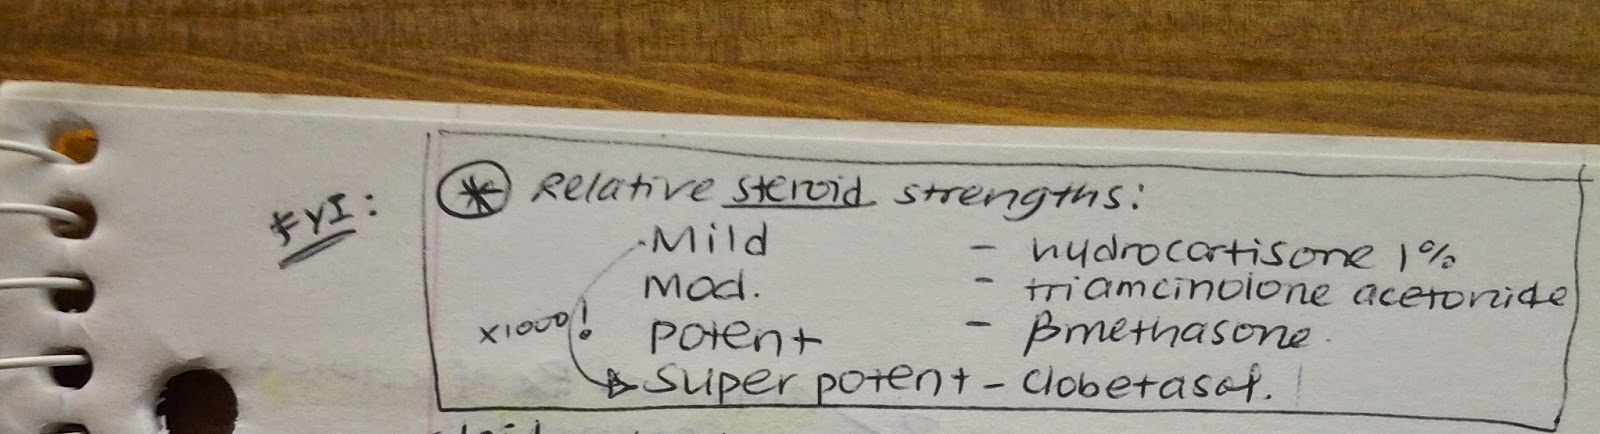 FYI:
* Relative steroid strengths:
Mild - hydrocortisone 1%
Mod. - triamcinolone acetonide
x1000!
potent - βmethasone.
super potent - clobetasol.